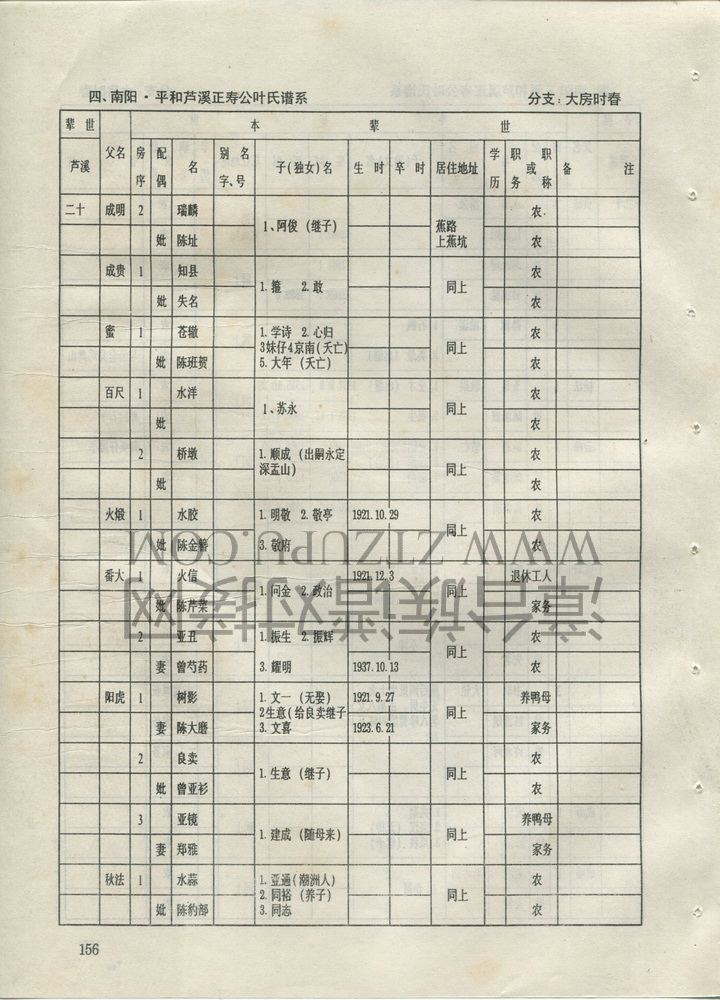 四、南阳·平和芦溪正寿公叶氏谱系 分支:大房时春
辈世 本 辈 世
芦溪 父名 房序 配偶 名 别名字、号 子(独女)名 生时 卒时 居住地址 学历 职务或职称 备注
二十 成明 2 瑞麟 1、阿俊(继子) 蕉路上蕉坑 农
妣 陈址 农
成贵 1 知县 1. 箍 2. 敢 同上 农
妣 失名 农
蜜 1 苍辙 1. 学诗 2. 心归 同上 农
3妹仔4京南(夭亡)
妣 陈班贺 5. 大年(夭亡) 农
百尺 1 水洋 1、苏永 同上 农
妣 农
2 桥墩 1. 顺成(出嗣永定 同上 农
深盂山)
妣 农
火煅 1 水胶 1. 明敬 2. 敬亭 1921.10.29 同上 农
妣 陈金簪 3. 敬府 农
番大 1 火信 1. 问金 2. 政治 1921.12.3 同上 退休工人
妣 陈芹菜 家务
2 亚丑 1. 振生 2. 振辉 同上 农
妻 曾芍药 3. 耀明 1937.10.13 农
阳虎 1 树影 1. 文一(无娶) 1921.9.27 同上 养鸭母
2生意(给良卖继子
妻 陈大磨 3. 文喜 1923.6.21 家务
2 良卖 1. 生意(继子) 同上 农
妣 曾亚衫 农
3 亚镜 1. 建成(随母来) 同上 养鸭母
妻 郑雅 家务
秋法 1 水蒜 1. 亚通(潮洲人) 同上 农
2. 同裕(养子)
妣 陈豹部 3. 同志 农
156
WWW.ZTZUPU.COM
漳台族谱对接网